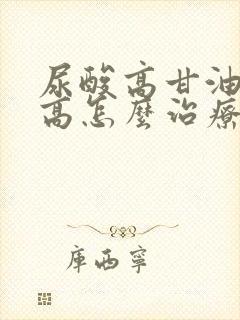 尿酸高甘油
高怎麼治療
庫西寧